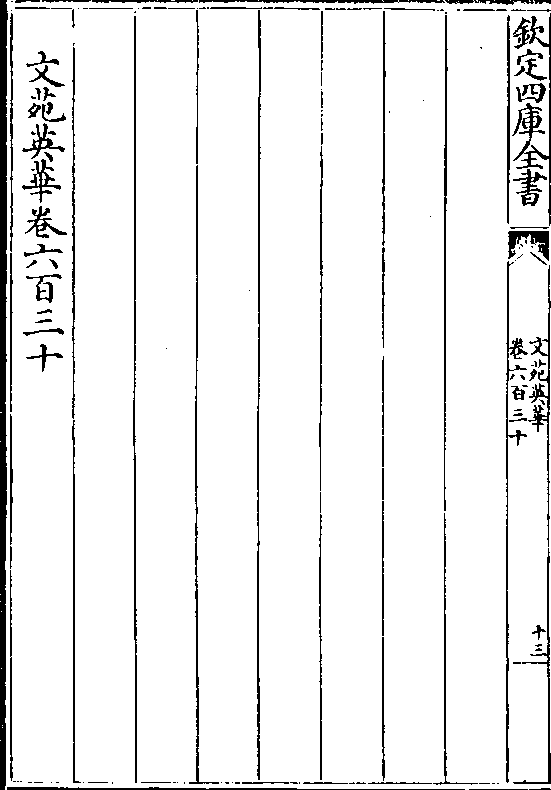 欽定四庫全書
文苑英華
卷六百三十
十三
文苑英華卷六百三十